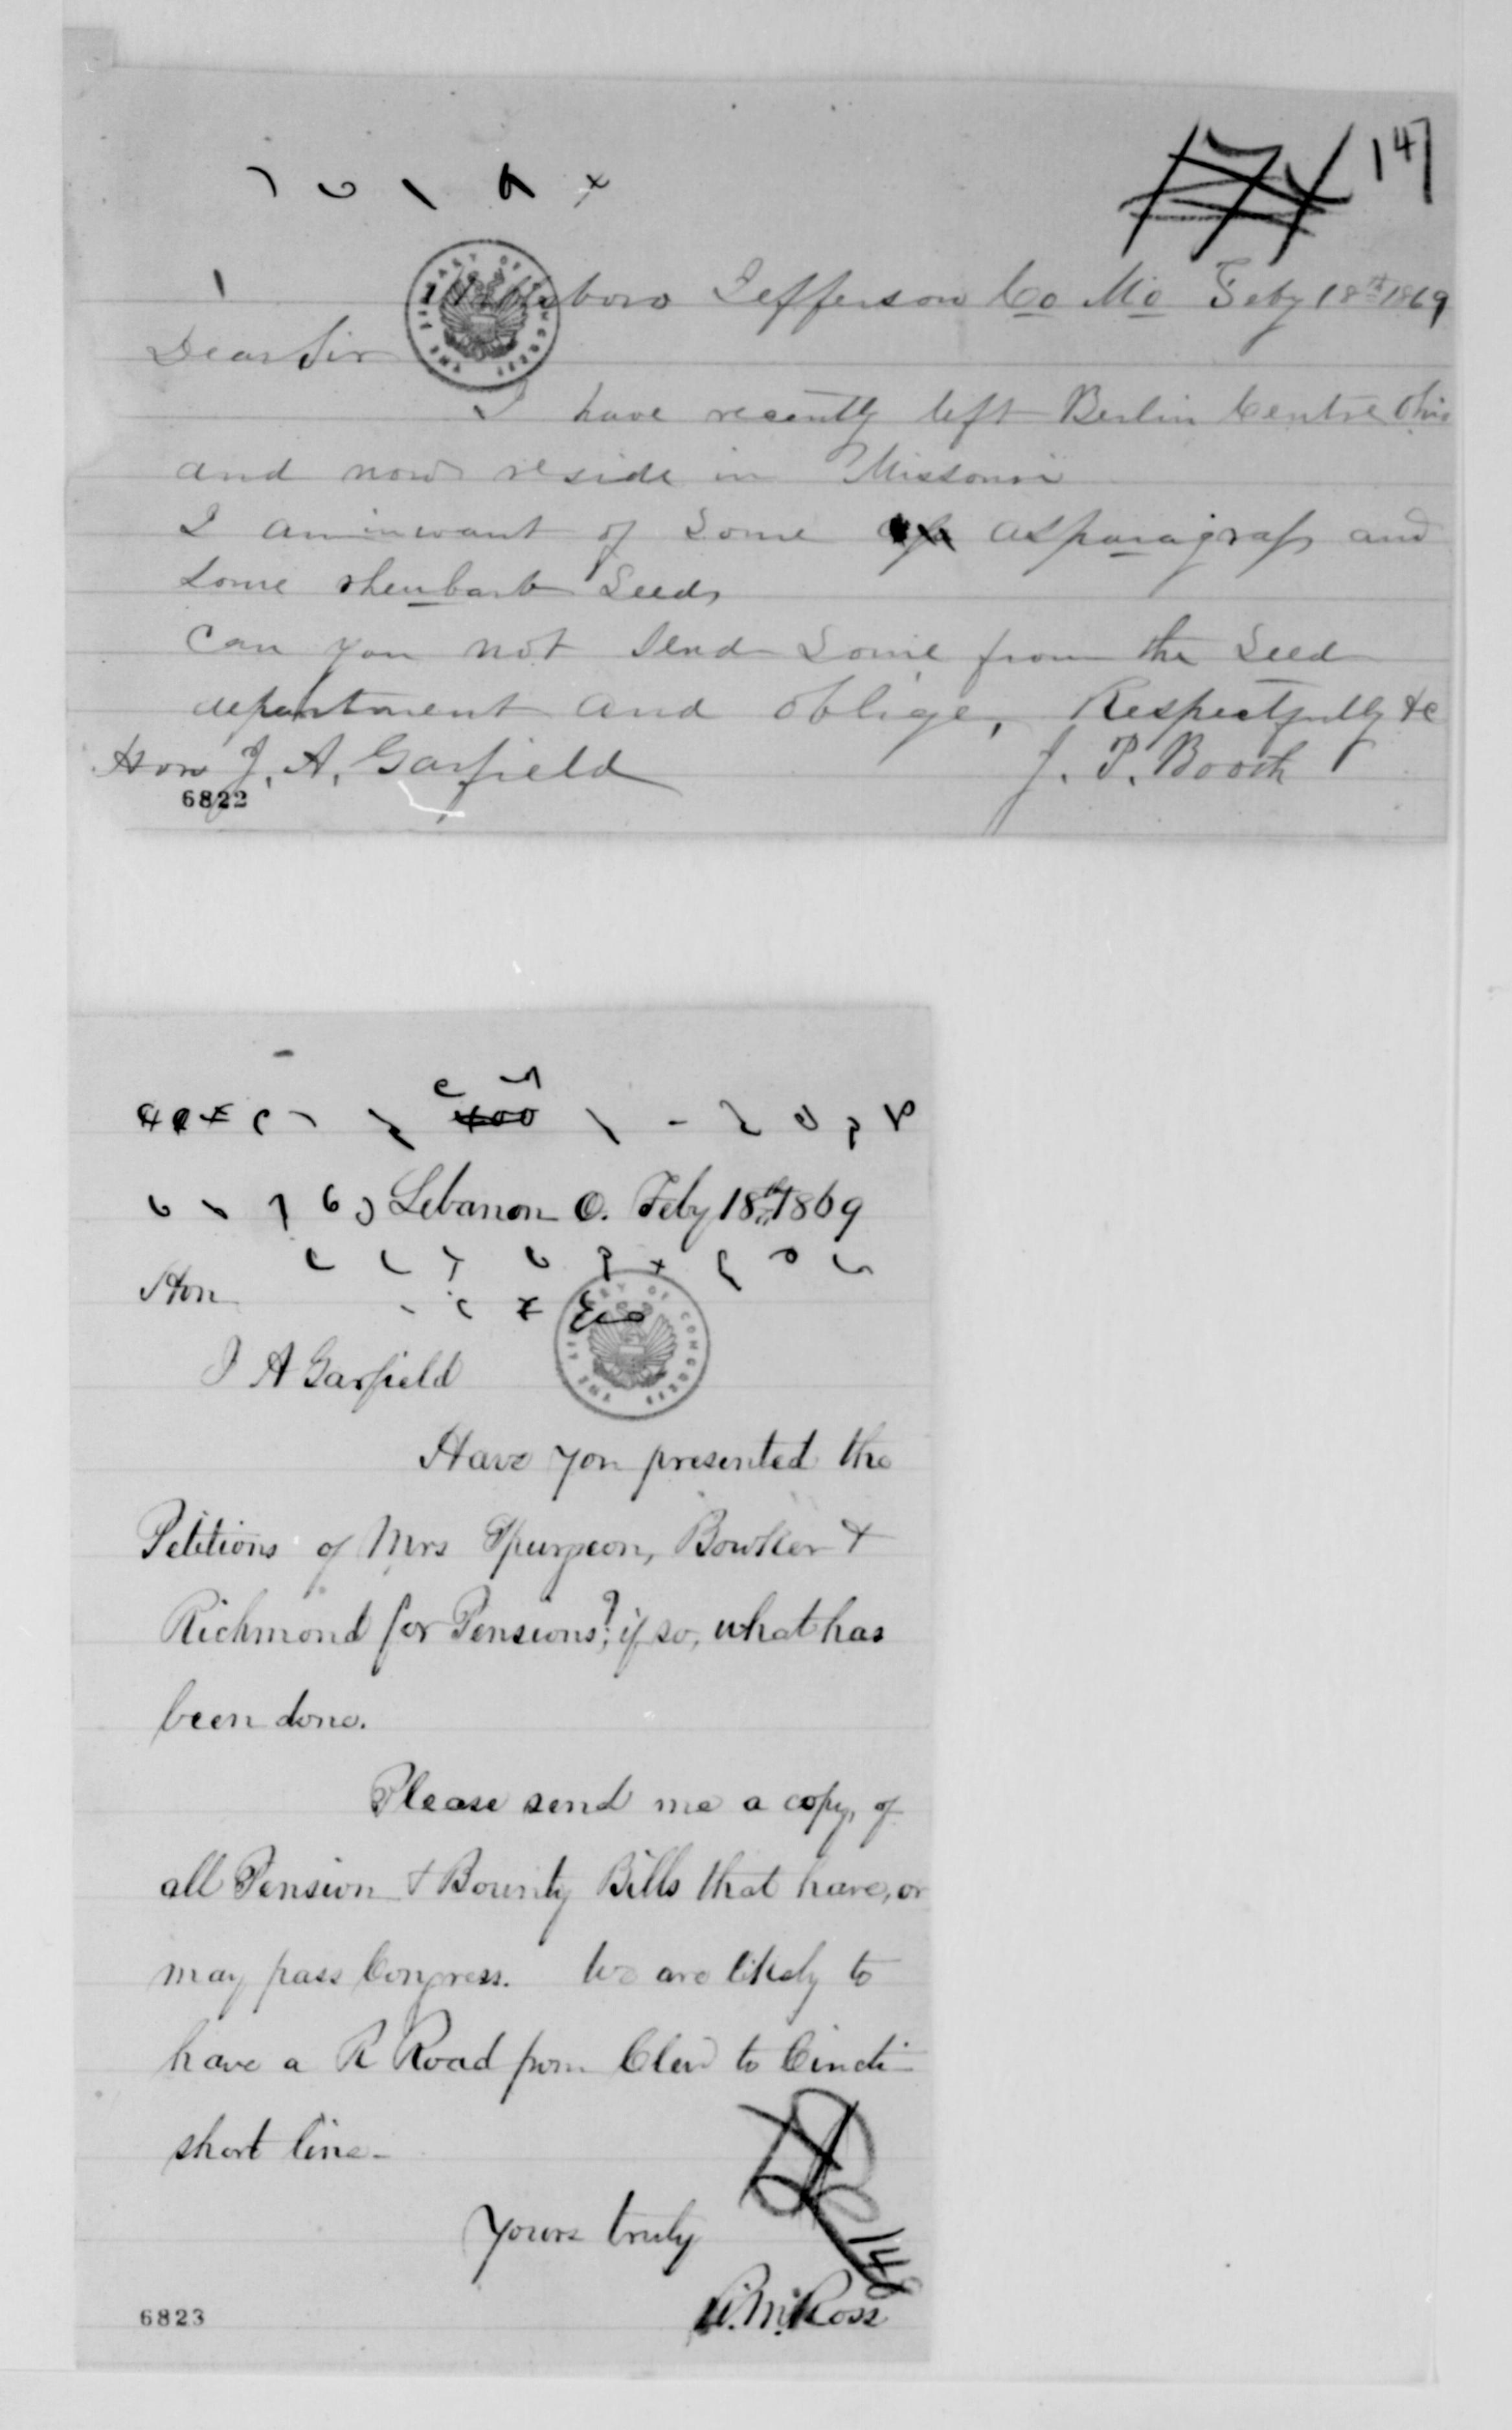 147
Hillsboro Jefferson Co Mo Feby 18th 1869
Dear Sir
I have recently left Berlin Centre Ohio
and now reside in Missouri
I am in want of some asparagrass and
some rheubarb seeds
Can you not send some from the seed
department and oblige, Respectfully &c
Hon J. A. Garfield J. P. Booth
6822
Lebanon O. Feby 18th 1869
Hon
J A Garfield
Have you presented the
Petitions of Mrs Spurgeon, Bowker &
Richmond for Pensions?; if so, what has
been done.
Please send me a copy, of
all Pension & Bounty Bills that have, or
may pass Congress. We are likely to
have a R Road from Clev to Cincti
short line-
Yours truly
148
Ross
6823